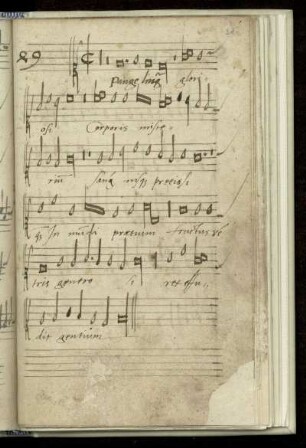 29
Pange linguā glori-
osi Corporis miste-
riū sanguinisqȝ preciosi
qȝ In mūdi præmium fructus vē
tris genero si rex effu-
dit gentium